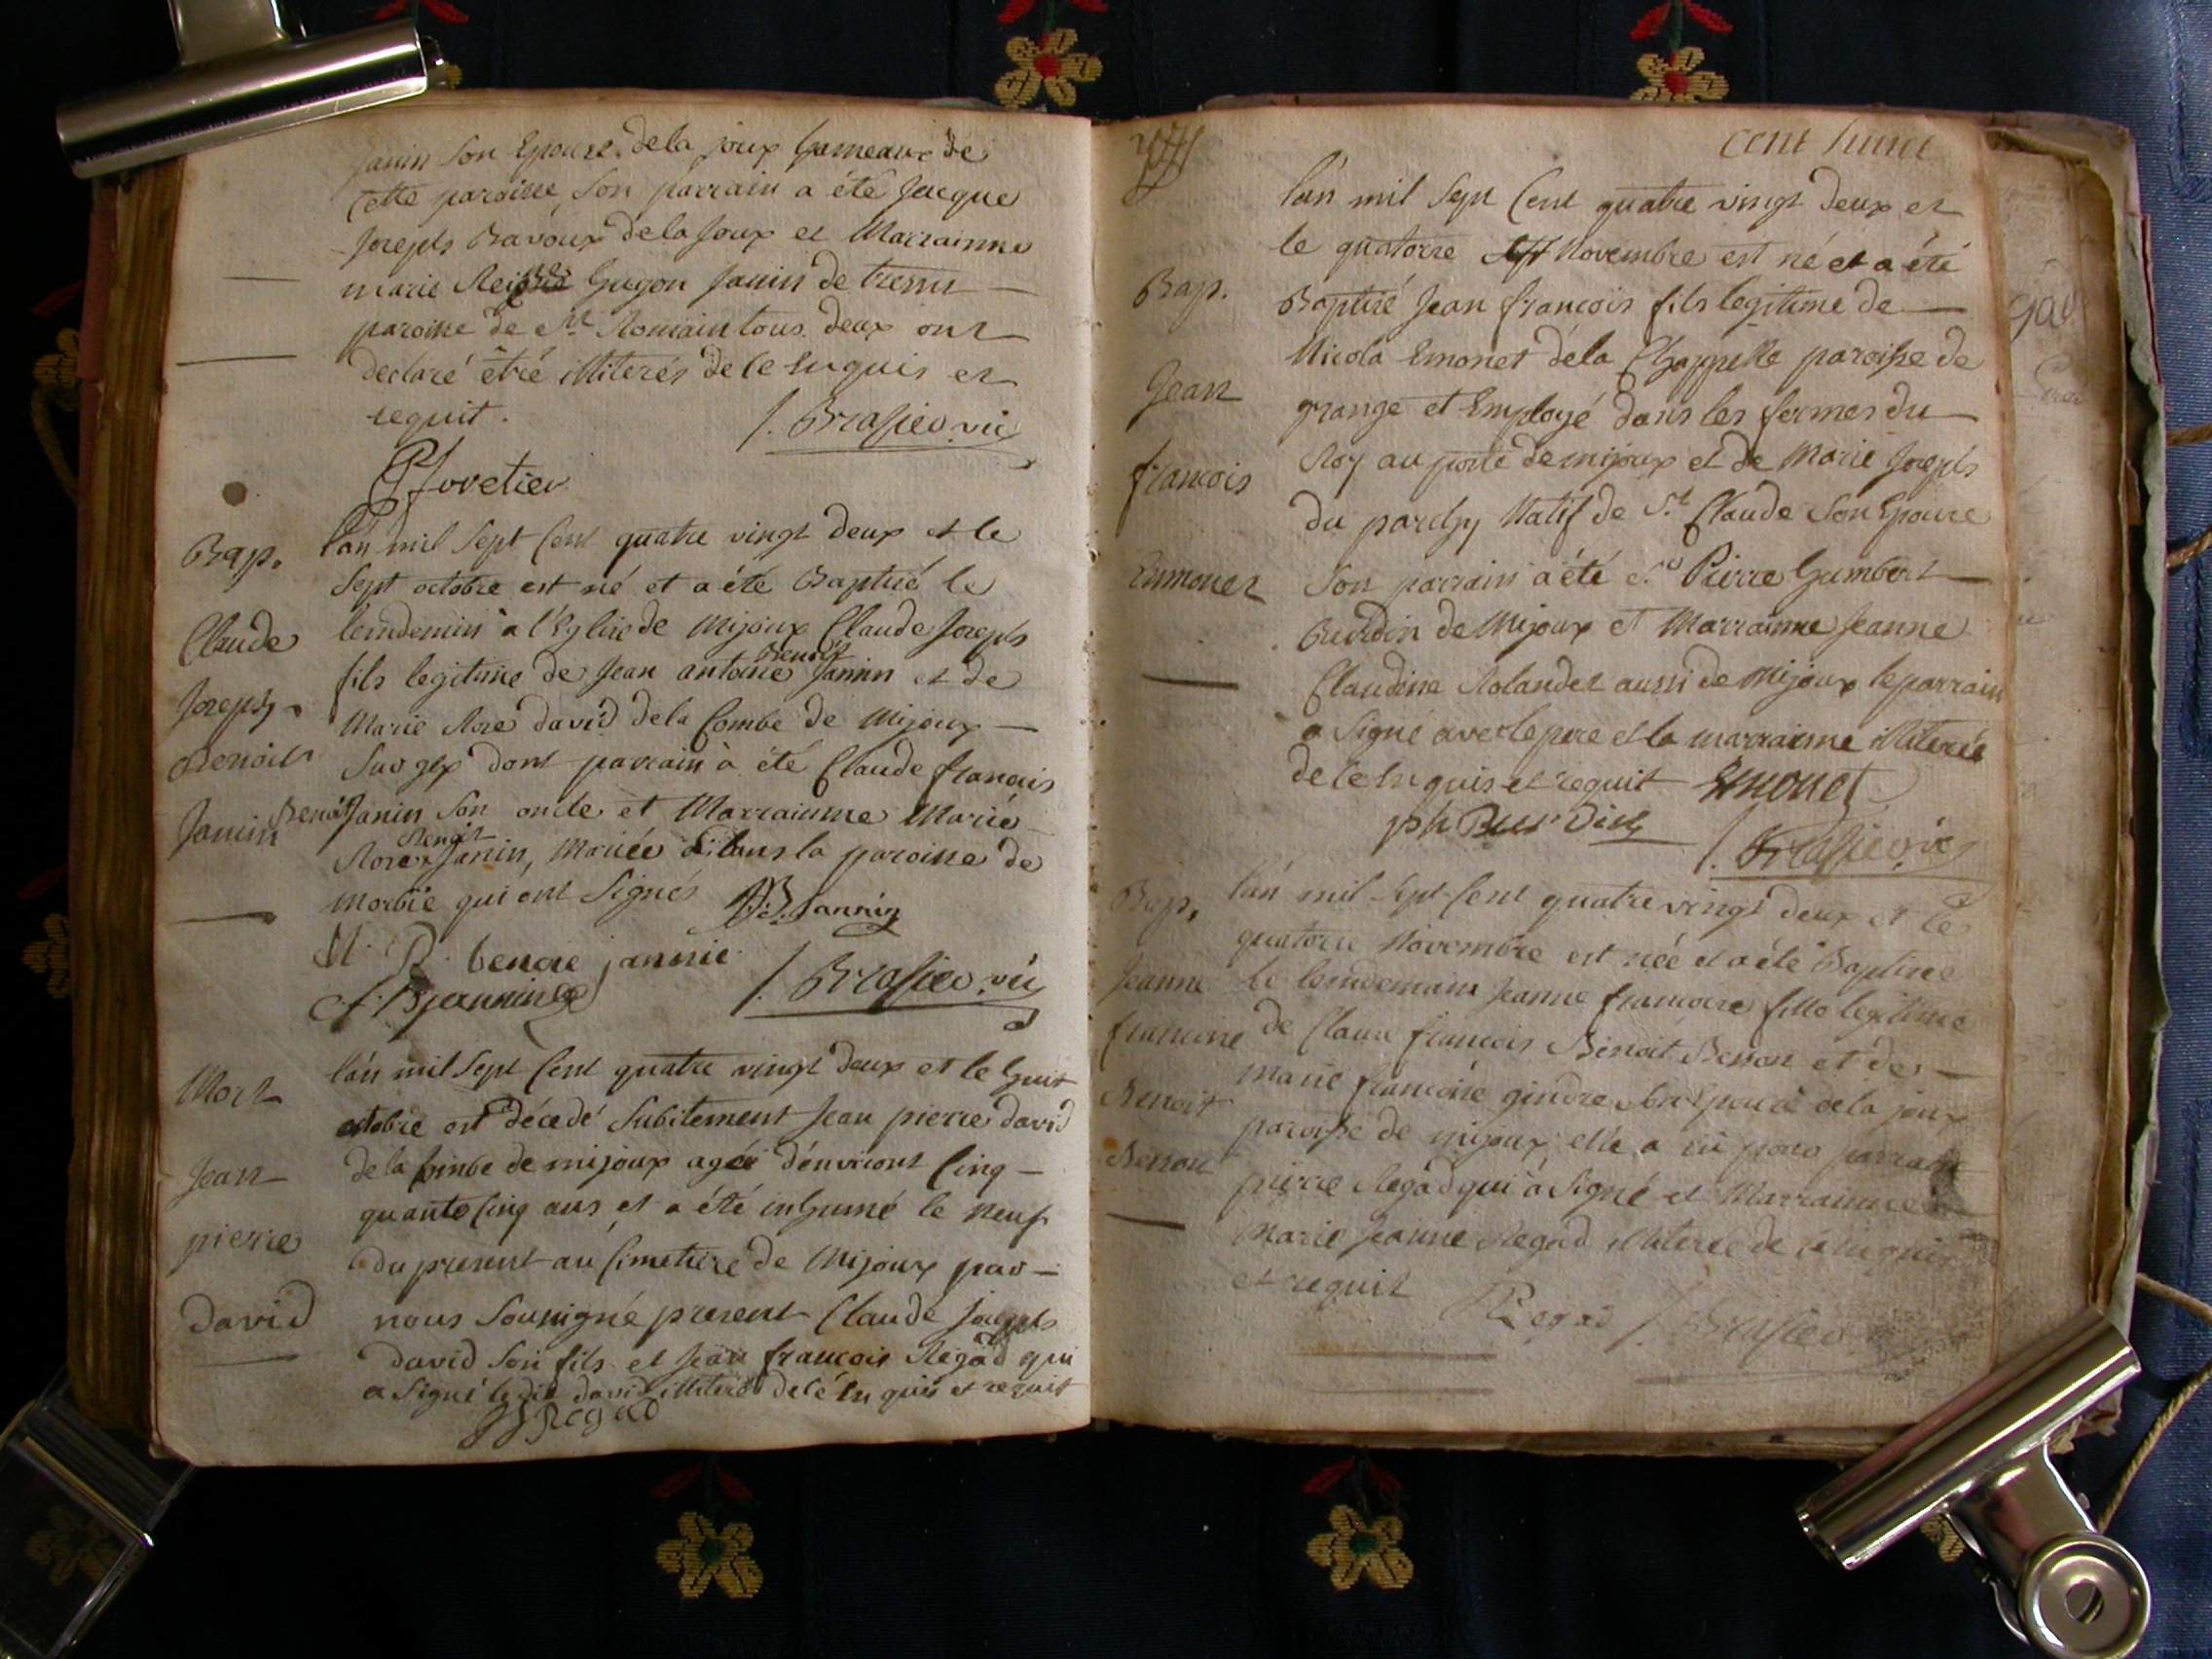 janin son Epouse de la joux hameaux de
Cette paroisse, son parrain a été Jacque
Joseph Bavoux de la Joux et Marrainne
marie Reine Gugon Janin de tressu
paroisse de St Romain tous deux ont
declaré être illiterés de ce Enquis et
requit. J. Brasier vic
forétier
Bap. l'an mil Sept Cent quatre vingt deux et le
Sept octobre est né et a été Baptisé le
Claude lendemin a l'Eglise de Mijoux Claude Joseph
Benoit
Joseph fils legitime de Jean antoine Janin et de
Marie Rose david de la Combe de Mijoux
Benoit Sur gex dont parrain à été Claude francois
Janin Benoit Janin son oncle et Marrainne Marie
Benoit
Rose Janin, Mariée dans la paroisse de
morbie qui ont Signés B. Jannin
M. R. benoie jannie
J. Brasier vic
Mort l'an mil Sept Cent quatre vingt deux et le huit
octobre est décedé Subitement Jean pierre david
Jean de la Combe de mijoux agée d'environt Cinq
quante Cinq ans et a été inhumé le neuf
pierre du present au Cimetiere de Mijoux par
David nous Soussigné present Claude joseph
david Son fils et Jean francois Regad qui
a Signé le dit david illiteré de cé Enquis et requit
JJ Regad
cent huit
l'an mil Sept Cent quatre vingt deux et
le quatorze Novembre est né et a été
Bap. Baptisé Jean francois fils legitime de
Nicola Emonet de la Chappelle paroisse de
Jean grange et Employé dans les fermes du
francois Roy au poste de mijoux et de Marie Joseph
du parchy Natif de St Claude Son Epouse
Emonet Son parrain a été Sr Pierre humbert
Burdin de Mijoux et Marrainne Jeanne
Claudine Rolandez aussi de Mijoux le parrain
a Signé avec le pere et la marrainne illiterée
de ce Enquis et requit Emonet
ph Burdin
J. Brasier vic
Bap. l'an mil Sept Cent quatre vingt deux et le
quatorze Novembre est née et a été Baptisée
Jeanne le lendemain Jeanne francoise fille legitime
francoise de Claud francois Benoit Besson et de
marie francoise gindre Son Epouse de la joux
Benoit paroisse de mijoux, elle a eu pour parrain
Besson pierre Regad qui à Signé et Marrainne
Marie Jeanne Regad illiterée de ce Enquis
et requit
P Regad J. Brasier